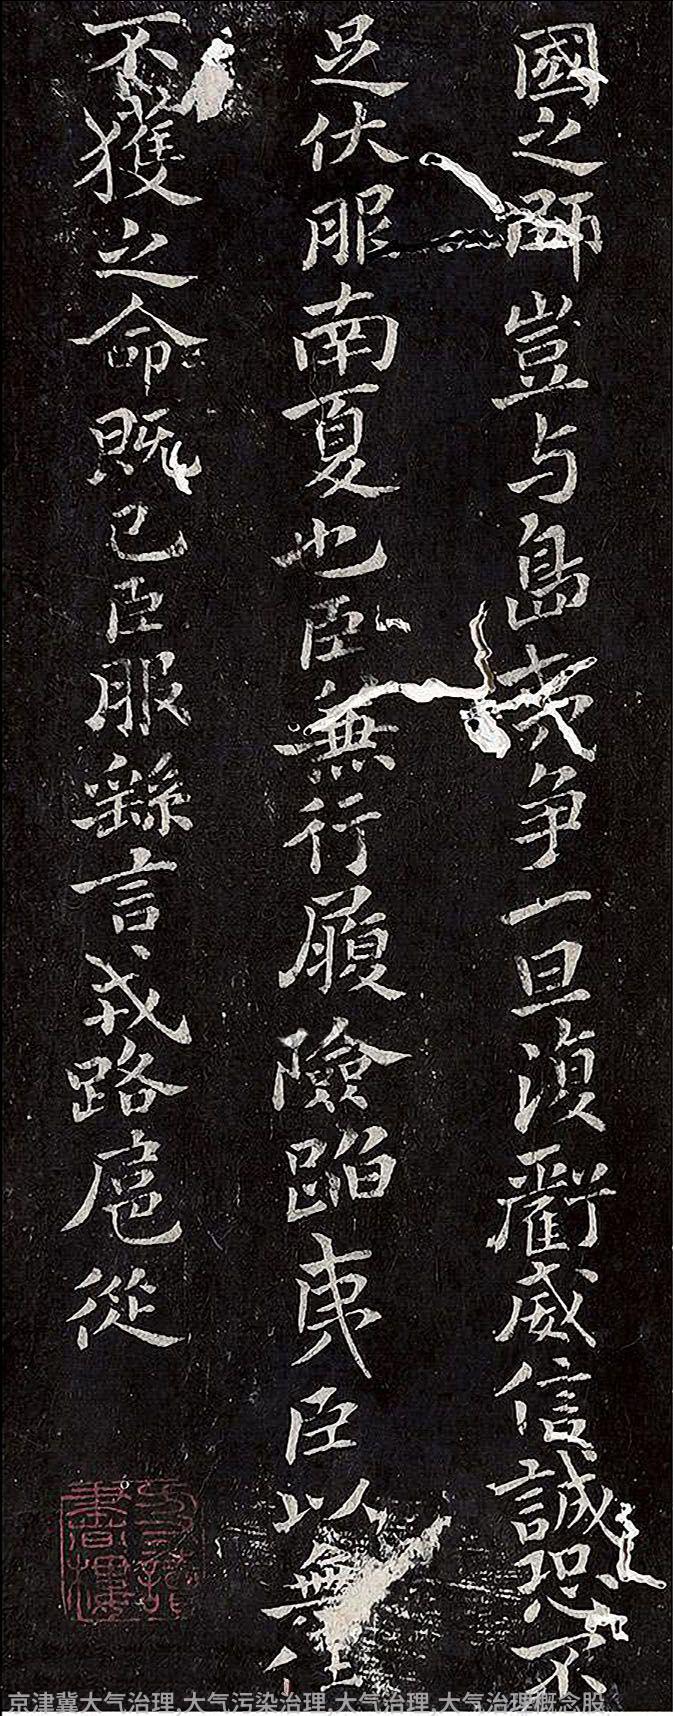 國之師豈与島夷争一旦須勸威信誠恐不
足伏服南夏也臣無行履險蹈夷臣以無任
不獲之命既已臣服繇言戎路扈從
京津冀大气治理,大气污染治理,大气治理,大气治理概念股